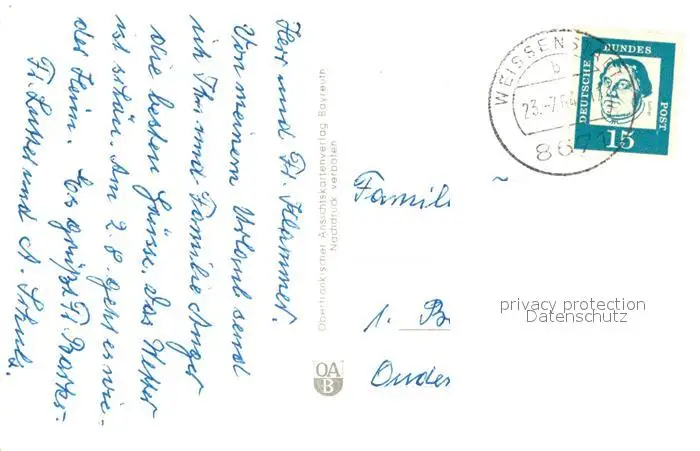 Herr und Fr. Klammer.
Von meinem Urlaub send
ich Ihn und Familie Unger
die besten Grüsse. Das Wetter
ist schön. Am 2.8. geht es wie-
der Heim. Es grüßt Fr.
Fr. und A. Schulz.
Oberfränkischer Ansichtskartenverlag Bayreuth
Nachdruck verboten
OA
B
WEISSENST
b
23.-7.64
867
DEUTSCHE
BUNDES
POST
15
Famili
1. B
privacy protection
Datenschutz